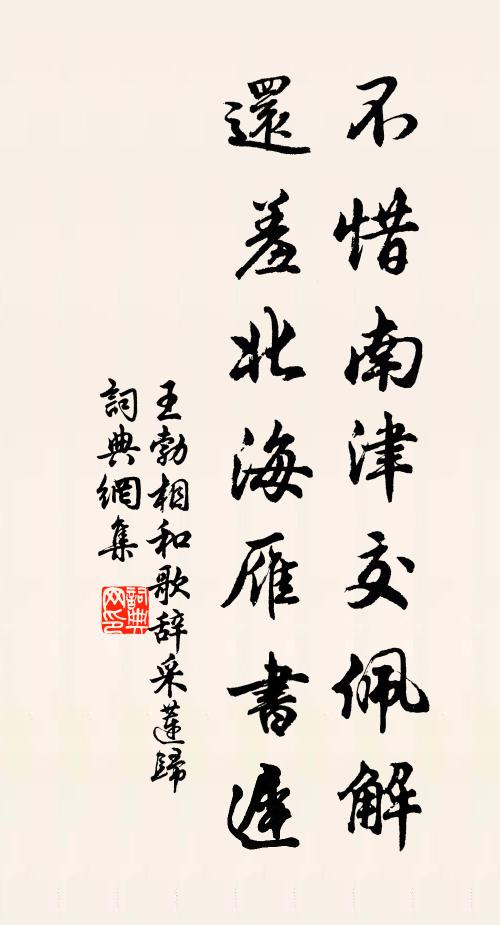 不惜南津交佩解
還羞北海雁書遲
王勃相和歌辞采蓮歸
詞典網集
詞典
网印